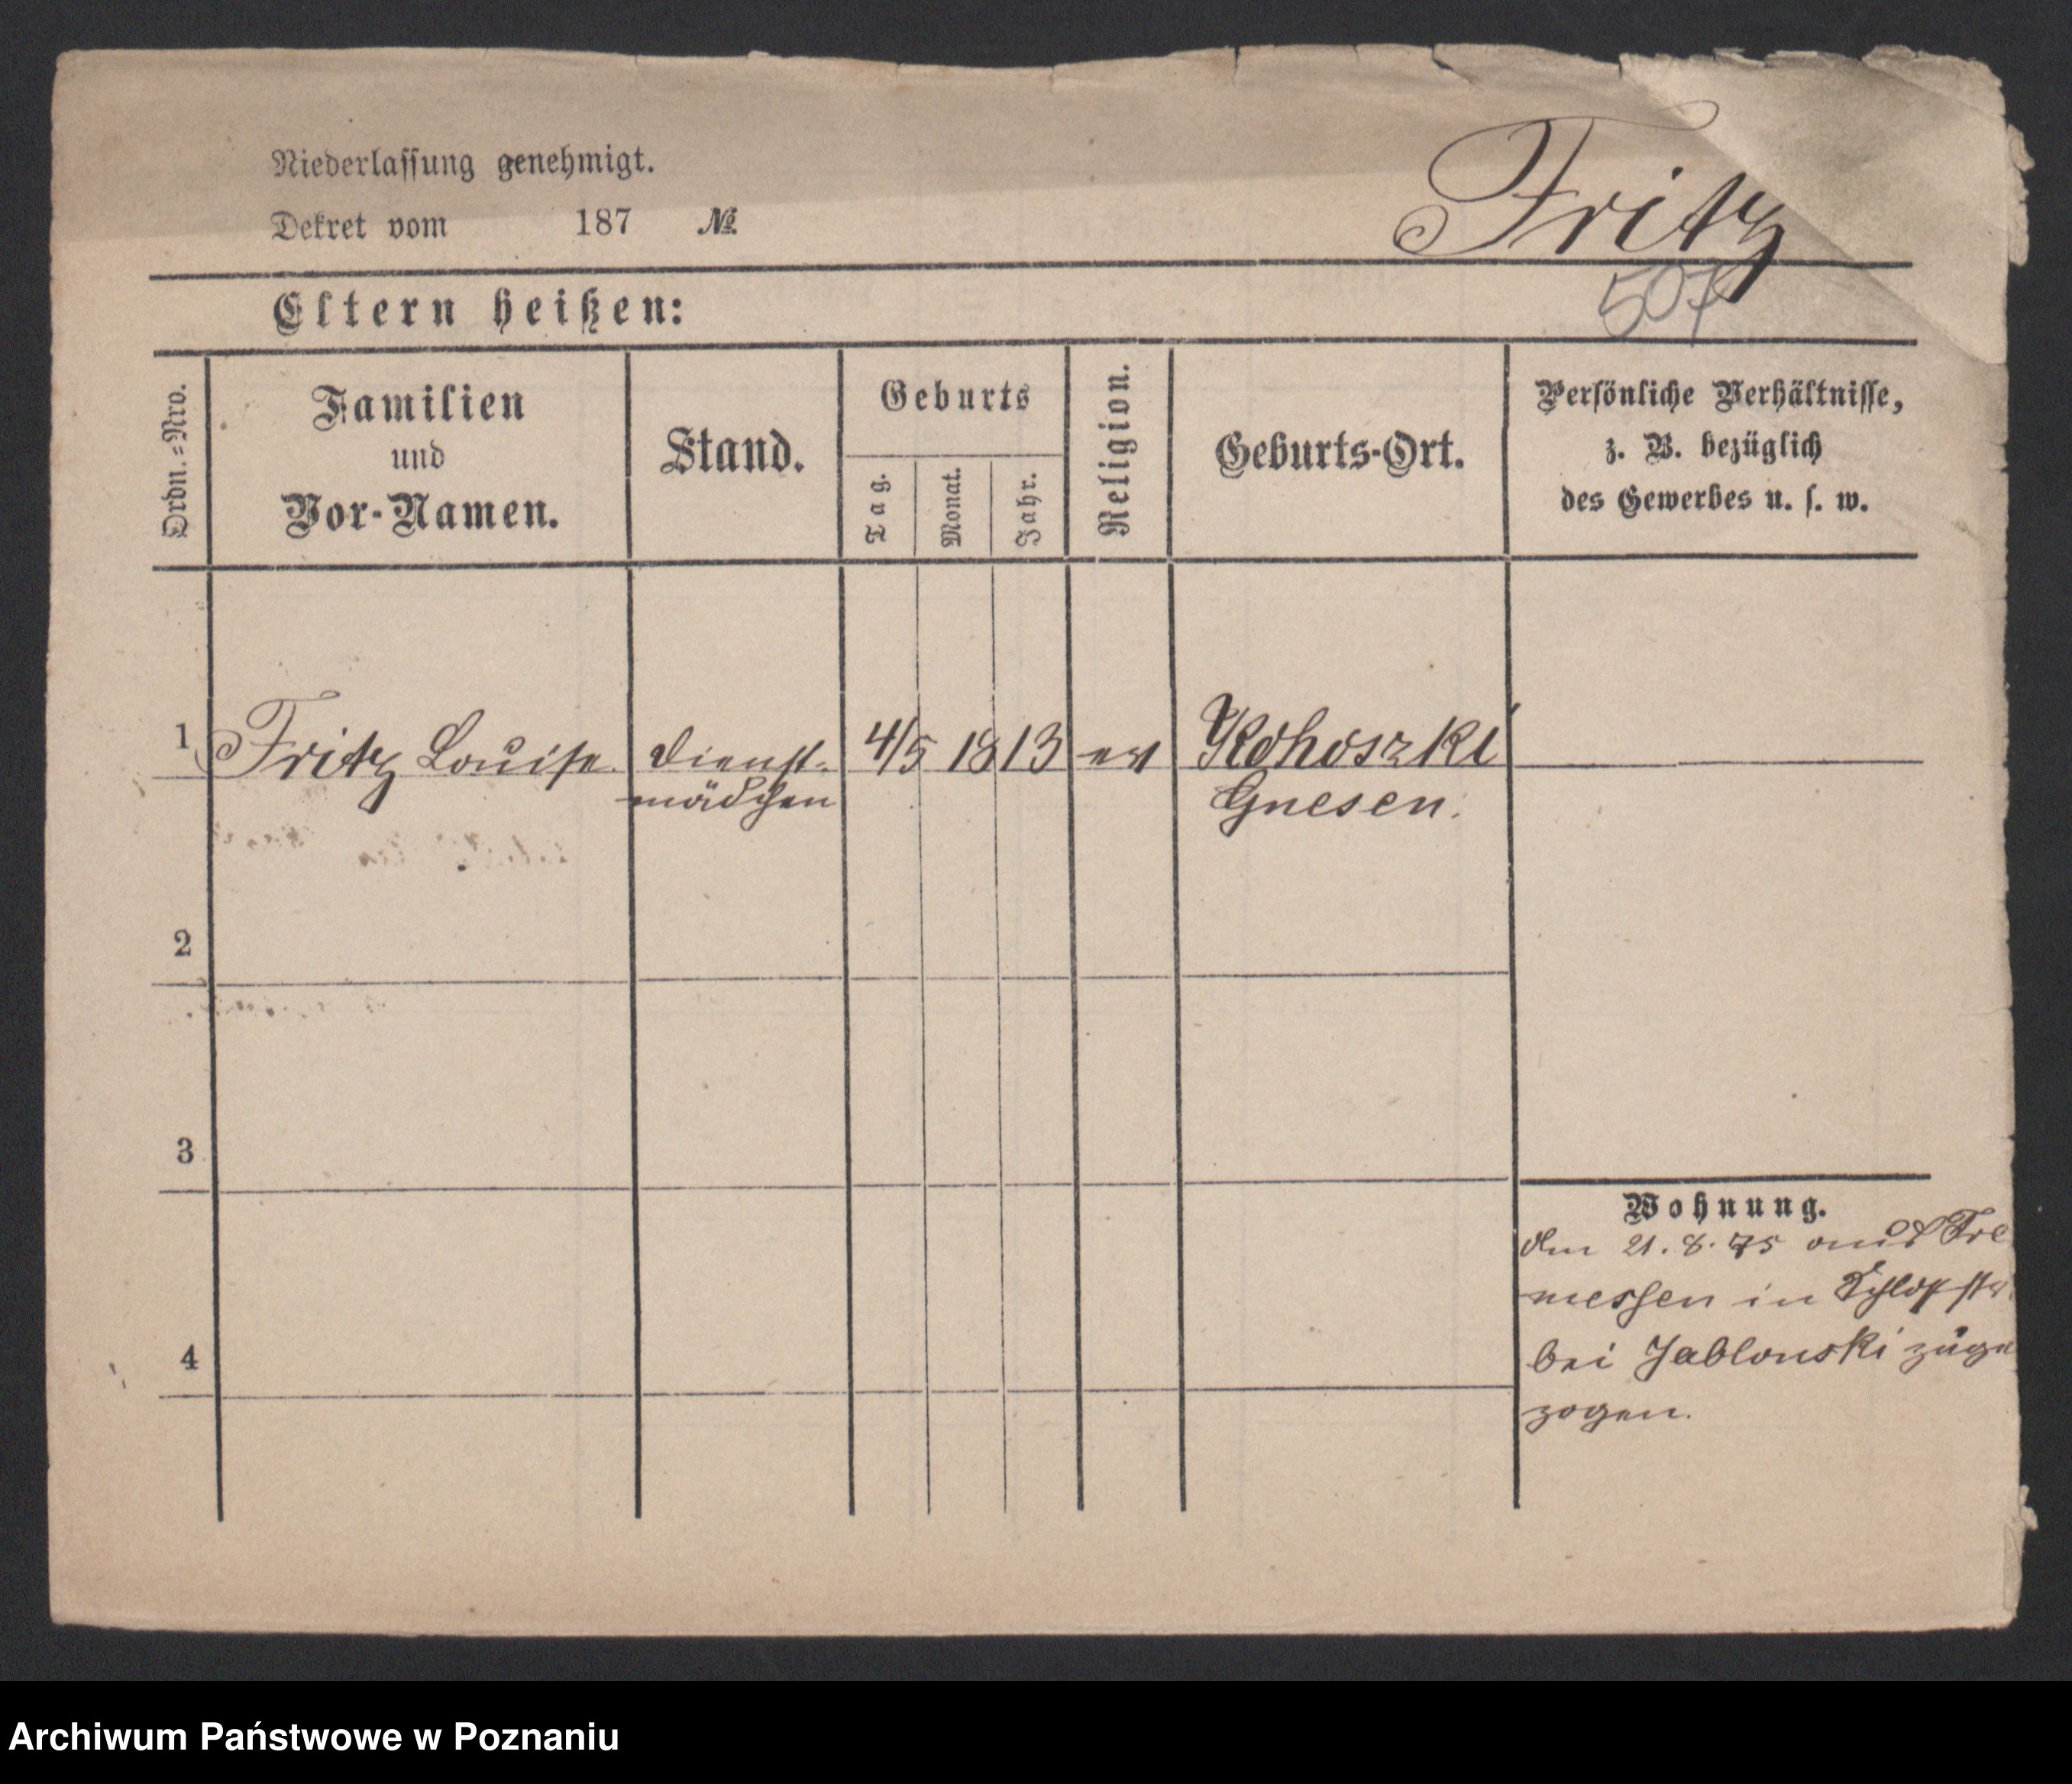 Niederlassung genehmigt.
Fritz
Dekret vom 187 №
507
Eltern heißen:
Ordn.=Nro.
Familien
und
Vor-Namen.
Stand.
Geburts
Tag.
Monat.
Jahr.
Religion.
Geburts-Ort.
Persönliche Verhältnisse,
z. B. bezüglich
des Gewerbes u. s. w.
1 Fritz Louise Dienst- 4/5 1813 ev Kokoszki
mädchen Gnesen.
2
3
4
Wohnung.
den 21.8.75 aus Tre
messen in Schloßstr.
bei Jablonski zuge
zogen.
Archiwum Państwowe w Poznaniu